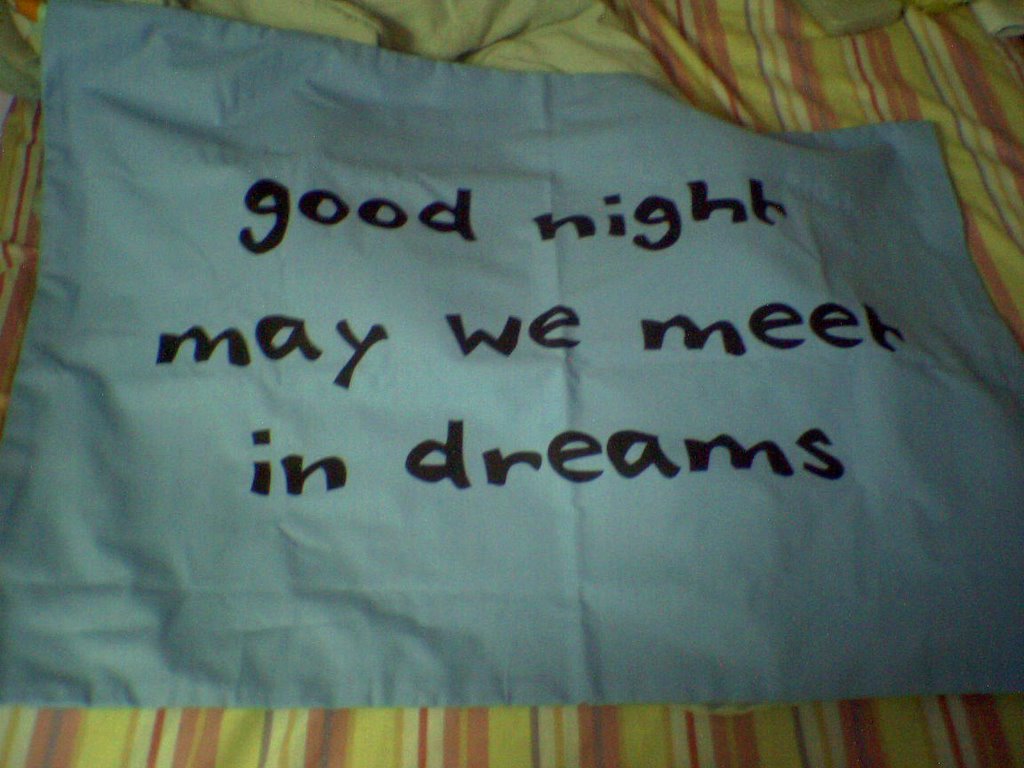 good night
may we meet
in dreams